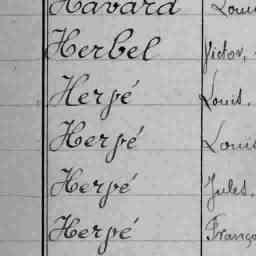 Havard Loui
Herbel Victor,
Herpé Louis,
Herpé Louis
Herpé Jules,
Herpé Franço